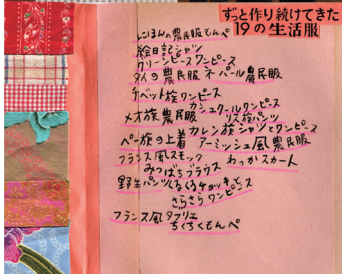 ずっと作り続けてきた
19の生活服
にほんの農民服もんぺ
絵日記シャツ
グリーンピースワンピース
タイの農民服 ネパール農民服
チベット族ワンピース
カシュクールワンピース
メオ族農民服 リス族パンツ
ペー族の上着 カレン族シャツとワンピース
アーミッシュ風農民服
フランス風スモック
みつばちブラウス わっかスカート
野生パンツ くるくるチョッキと
さらさらワンピース
フランス風タブリエ
ちくちくもんぺ